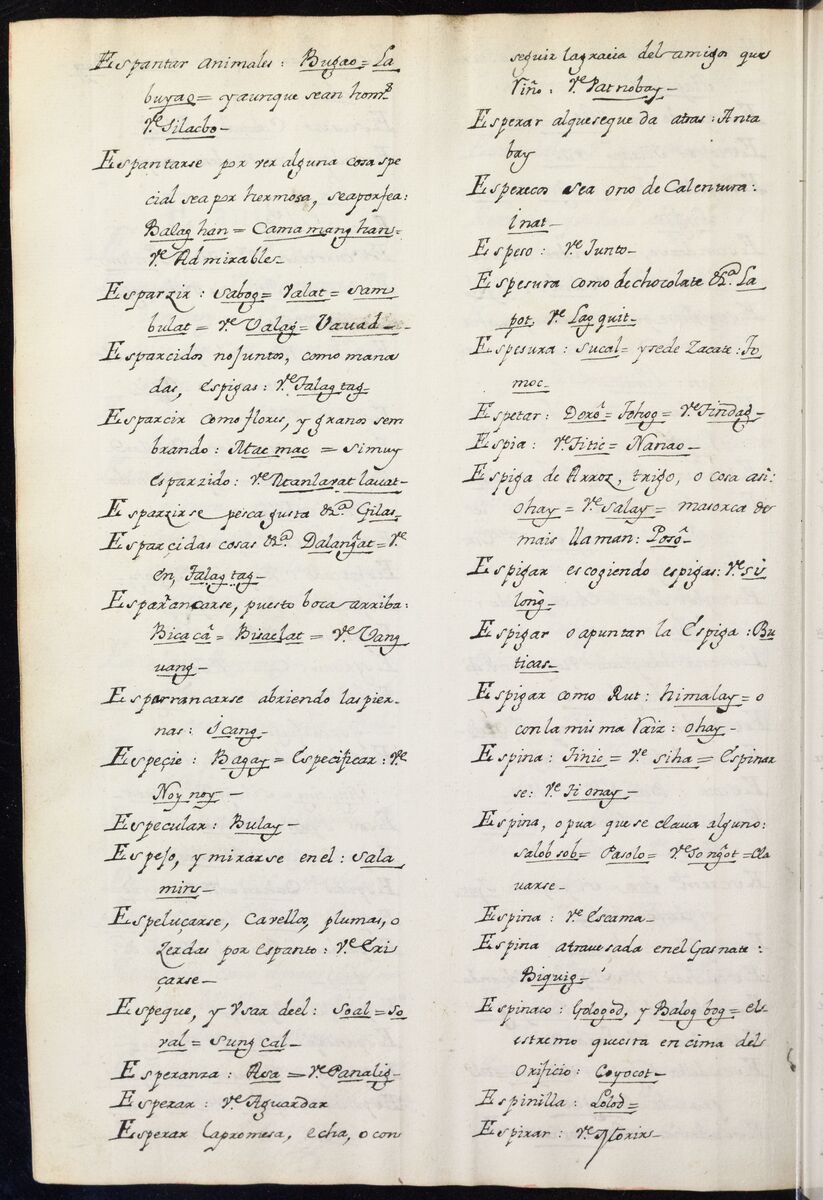 Espantar animales: Bugao= La
buyao= y aunque sean homs.
Ve. Silacbo-
Espantarse por ver alguna cosa spe
cial sea por hermosa, sea por fea:
Balaghan= Camamanghan=
Ve. Admirable-
Esparzir: Sabog= Valat= Sam
bulat= Ve. Valag= Vauad-
Esparcidos no juntos, como mana
das, espigas: Ve. Talagtag-
Esparcir como flores, y granos sem
brando: Atac mac= si muy
esparzido: Ve.
Esparzirse pesca gusta &a. Gilas-
Esparcidas cosas &a. Dalang̃at= Ve
en, Talagtag-
Esparrancarse, puesto boca arriba:
Bicacâ= Bisaclat= Ve. Vang
vang-
Esparrancarse abriendo las pier
nas: Icang-
Espeçie: Bagay= Especificar: Ve.
Noynoy-
Especular: Bulay-
Espejo, y mirarse en el: Sala
min-
Espeluçarse, cavellos, plumas, o
zerdas por espanto: Ve. Eri
çarse-
Espeque, y Vsar deel: Soal= So
val= Sungcal-
Esperanza: Asa= Ve. Panalig-
Esperar: Ve. Aguardar
Esperar la promesa, echa, o con
seguir la gracia del amigos que
riño: Ve. Patnobay-
Esperar alqueseque da atras: Anta
bay
Esperecos sea o no de Calentura:
inat-
Espeso: Ve. Junto-
Espesura como de chocolate &a. La
pot, Ve. Lagquit-
Espesura: Sucal= y sede Zacate: To
moc-
Espetar: Dorô= Tohog= Ve. Tindag-
Espia: Ve. Titic= Nanao-
Espiga de Arroz, trigo, o cosa asi:
ohay= Ve. Salay= masorca de
mais llaman: Posô-
Espigar escogiendo espigas: Ve. si
long̃-
Espigar o apuntar la Espiga: Bu
ticas-
Espigar como Rut: himalay= o
con la misma Raiz: ohay-
Espina: Tinic= Ve. siha= Espinar
se: Ve. Tionay-
Espina, o pua que se clava alguno:
Salobsob= Pasolo= Ve. Tong̃ot= cla
varse-
Espina: Ve. Escama-
Espina atravesada en el Gasnate:
Biquig-
Espinaco: Gologod, y Balogbog= els
estremo questa en cima del
Orificio: Coyocot-
Espinilla: Lolod=
Espirar: Ve.